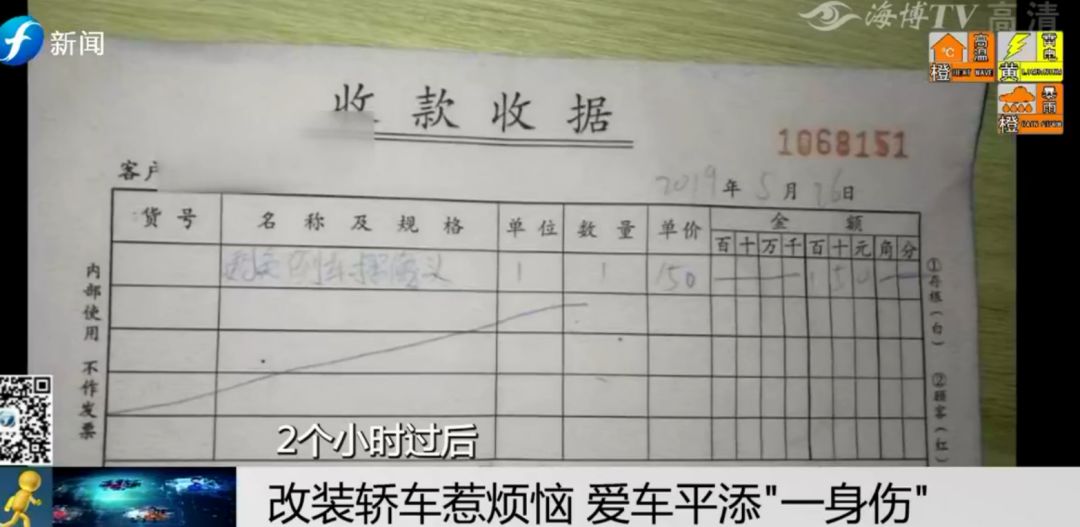 新闻
海博TV高清
℃
高温
橙
HEAT WAVE
雷电
黄
暴雨
橙
收款收据
1068151
客户
2019年5月26日
货号 名称及规格 单位 数量 单价 金额
百十万千百十元角分
1 1 150 150
内部使用 不作发票
①存根(白)
②顾客(红)
2个小时过后
改装轿车惹烦恼 爱车平添"一身伤"